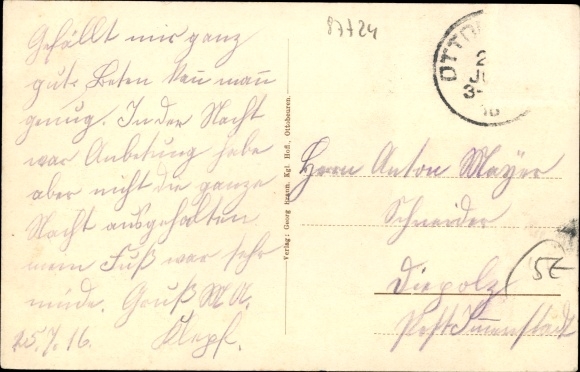 Gefällt mir ganz
gut. Beten kan man
genug. In der Nacht
war Anbetung habe
aber nicht die ganze
Nacht ausgehalten
mein Fuß war sehr
müde. Gruß M A.
25.7.16. Klepf.
87724
OTTO
2
JU
3-
16
Verlag: Georg Braun, Kgl. Hofl., Ottobeuren.
Herrn Anton Mayer
Schneider
Diepolz
Post Immenstadt
5E